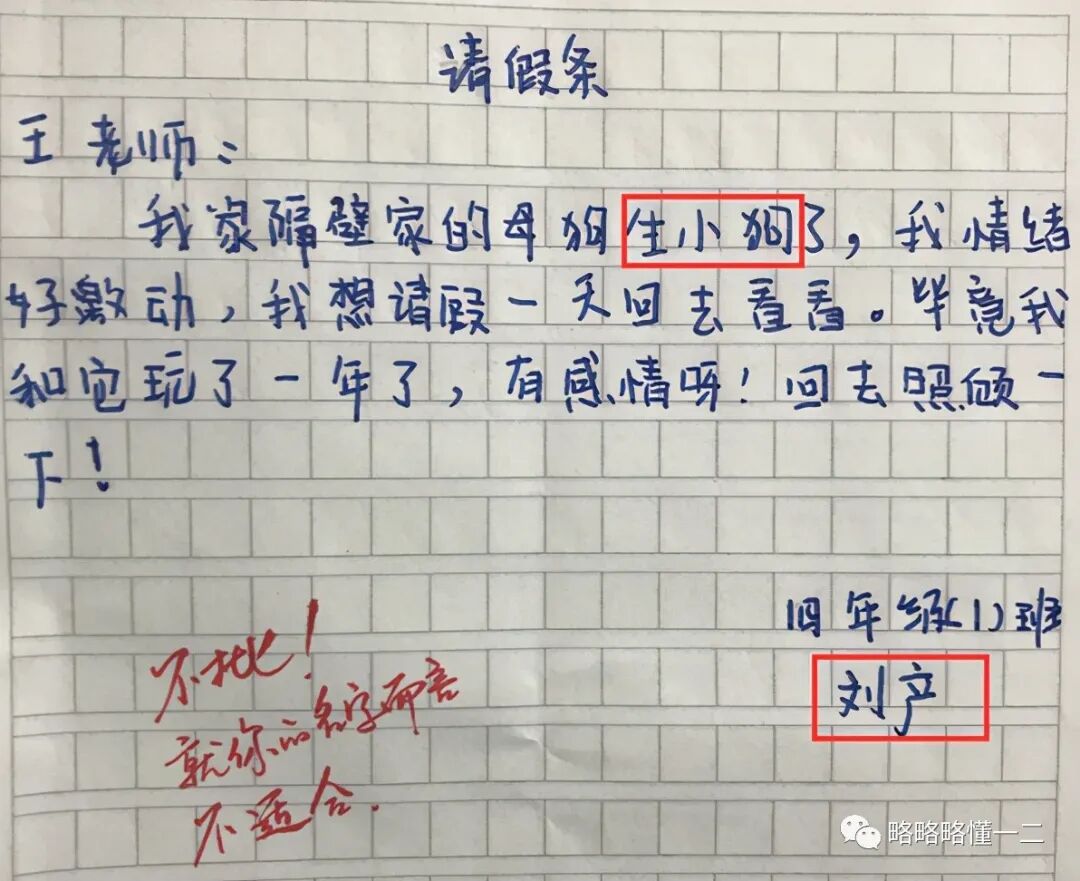 请假条
王老师：
我家隔壁家的母狗生小狗了，我情绪
好激动，我想请假一天回去看看。毕竟我
和它玩了一年了，有感情呀！回去照顾一
下！
四年级(1)班
刘产
不批！
就你的名字而言
不适合.
略略略懂一二